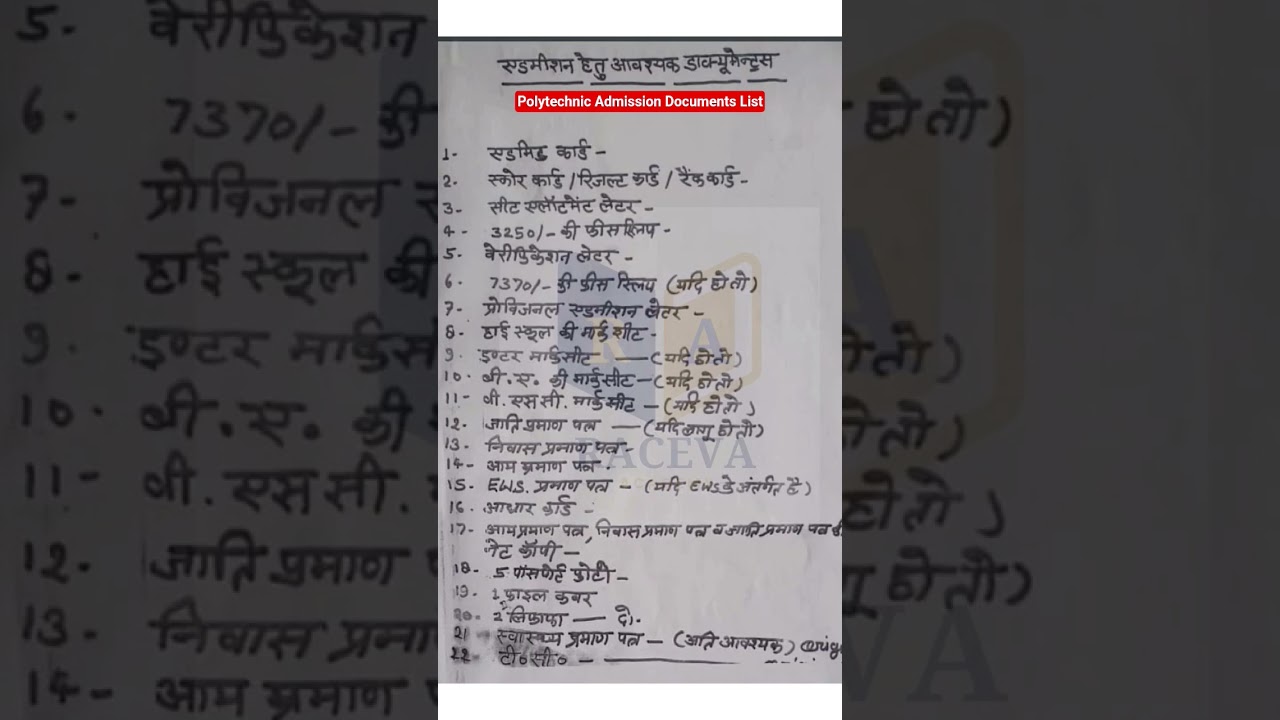 एडमीशन हेतु आवश्यक डाक्यूमेन्ट्स
Polytechnic Admission Documents List
1- एडमिड कार्ड -
2- स्कोर कार्ड / रिजल्ट कार्ड / रैंक कार्ड -
3- सीट एलॉटमेंट लेटर -
4- 3250/- की फीस स्लिप -
5- वेरीफिकेशन लेटर -
6- 7370/- की फीस स्लिप (यदि हो तो)
7- प्रोविजनल एडमीशन लेटर -
8- हाई स्कूल की मार्कशीट -
9- इण्टर मार्कसीट — (यदि हो तो)
10- बी.ए. की मार्कसीट — (यदि हो तो)
11- बी.एससी. मार्कसीट — (यदि हो तो)
12- जाति प्रमाण पत्र — (यदि लागू हो तो)
13- निवास प्रमाण पत्र -
14- आय प्रमाण पत्र -
15- EWS. प्रमाण पत्र - (यदि EWS के अंतर्गत है)
16- आधार कार्ड -
17- आय प्रमाण पत्र, निवास प्रमाण पत्र व जाति प्रमाण पत्र की
नेट कॉपी —
18- 5 पासपोर्ट फोटो -
19- 1 फाइल कवर
20- 2 लिफाफा — दो.
21 स्वास्थ्य प्रमाण पत्र — (अति आवश्यक)
22 टी०सी० -
RACEVA